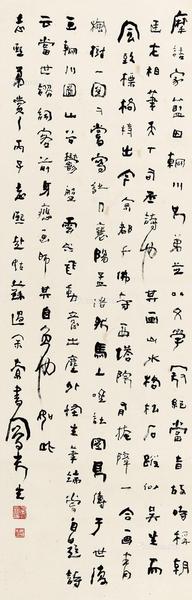 摩詰家藍田輞川兄弟並以文學冠絕當時故時稱朝
廷左相筆天下右丞詩也其畫山水松石蹤似吳生而
風致標格特出今京都千佛寺西塔院有掩障一合畫青
楓樹一圖又嘗寫詩人襄陽孟浩然馬上吟詩圖見傳于世復
畫輞川圖山谷鬱盤雲水飛動意出塵外怪生筆端嘗自題詩
云當世謬詞客前身應畫師其自負也如此
丙子